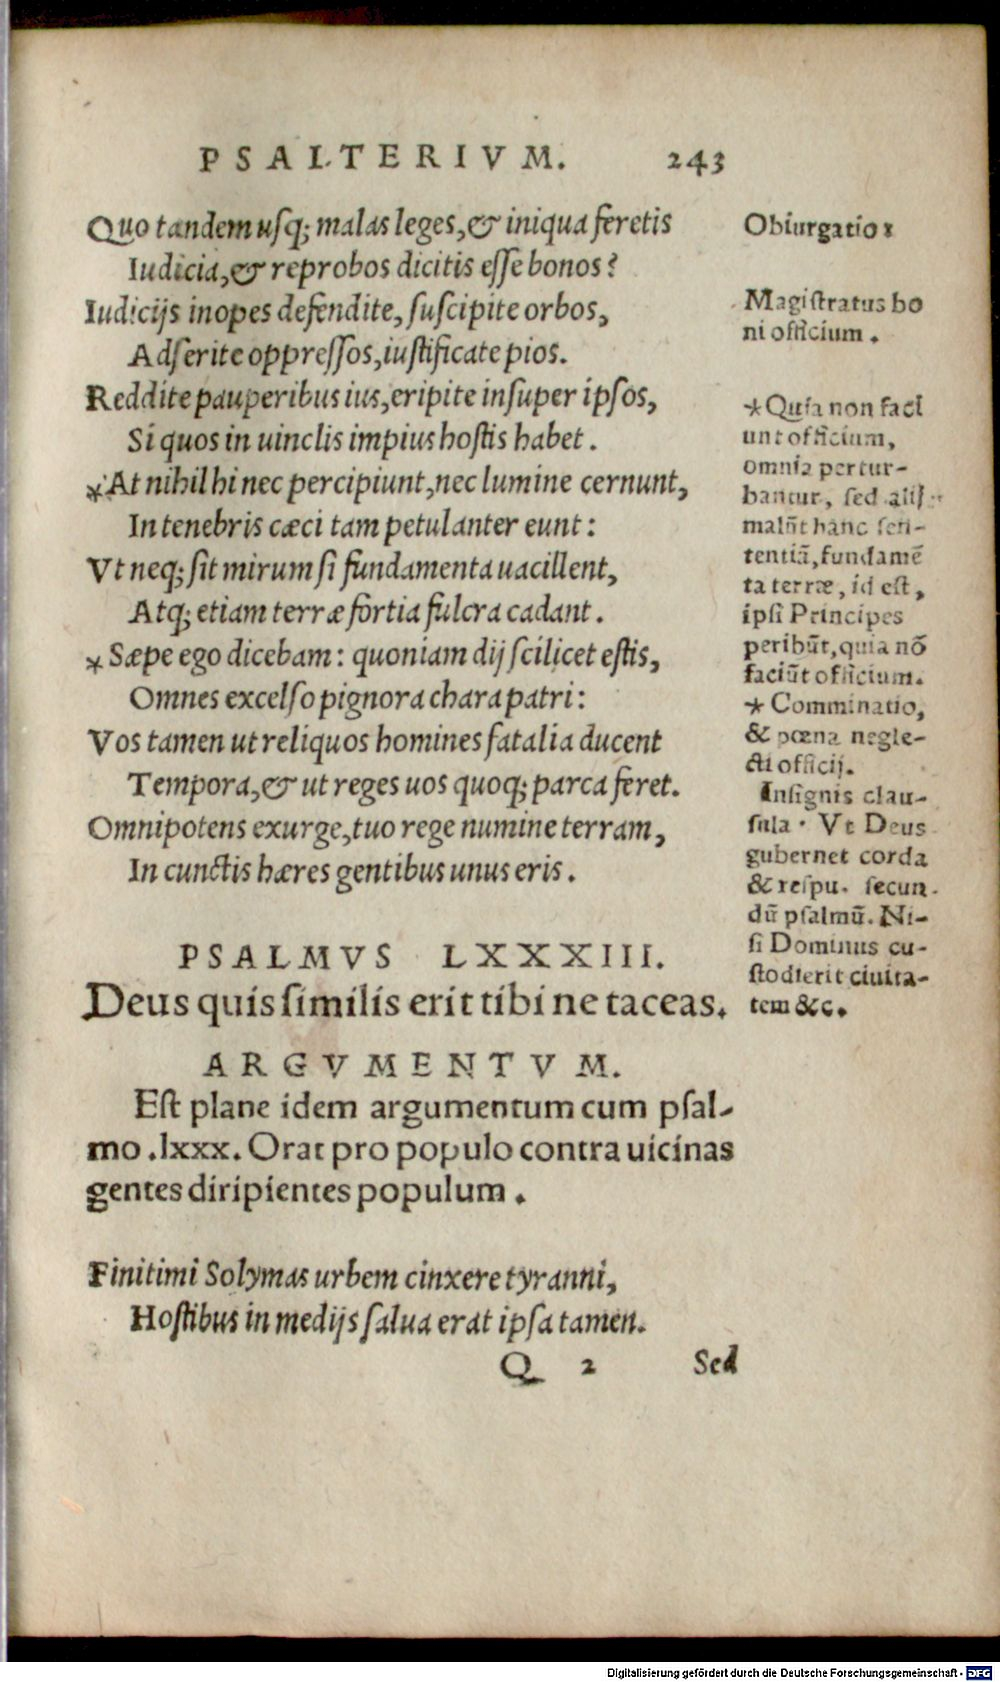 PSALTERIVM. 243
Quo tandem usq; malas leges, & iniqua feretis
Iudicia, & reprobos dicitis esse bonos?
Iudicijs inopes defendite, suscipite orbos,
Adserite oppressos, iustificate pios.
Reddite pauperibus ius, eripite insuper ipsos,
Si quos in uinclis impius hostis habet.
*At nihil hi nec percipiunt, nec lumine cernunt,
In tenebris cæci tam petulanter eunt:
Vt neq; sit mirum si fundamenta uacillent,
Atq; etiam terræ fortia fulcra cadant.
*Sæpe ego dicebam: quoniam dij scilicet estis,
Omnes excelso pignora chara patri:
Vos tamen ut reliquos homines fatalia ducent
Tempora, & ut reges uos quoq; parca feret.
Omnipotens exurge, tuo rege numine terram,
In cunctis hæres gentibus unus eris.
PSALMVS LXXXIII.
Deus quis similis erit tibi ne taceas.
ARGVMENTVM.
Est plane idem argumentum cum psal-
mo .lxxx. Orat pro populo contra uicinas
gentes diripientes populum.
Finitimi Solymas urbem cinxere tyranni,
Hostibus in medijs salua erat ipsa tamen.
Q 2 Sed
Obiurgatio
Magistratus bo
ni officium.
*Quia non faci
unt officium,
omnia pertur-
bantur, sed alij
malūt hanc sen-
tentiā, fundamē
ta terræ, id est,
ipsi Principes
peribūt, quia nō
faciūt officium.
* Comminatio,
& pœna negle-
cti officij.
Insignis clau-
sula. Vt Deus
gubernet corda
& respu. secun
dū psalmū. Ni-
si Dominus cu-
stodierit ciuita-
tem &c.
Digitalisierung gefördert durch die Deutsche Forschungsgemeinschaft - DFG